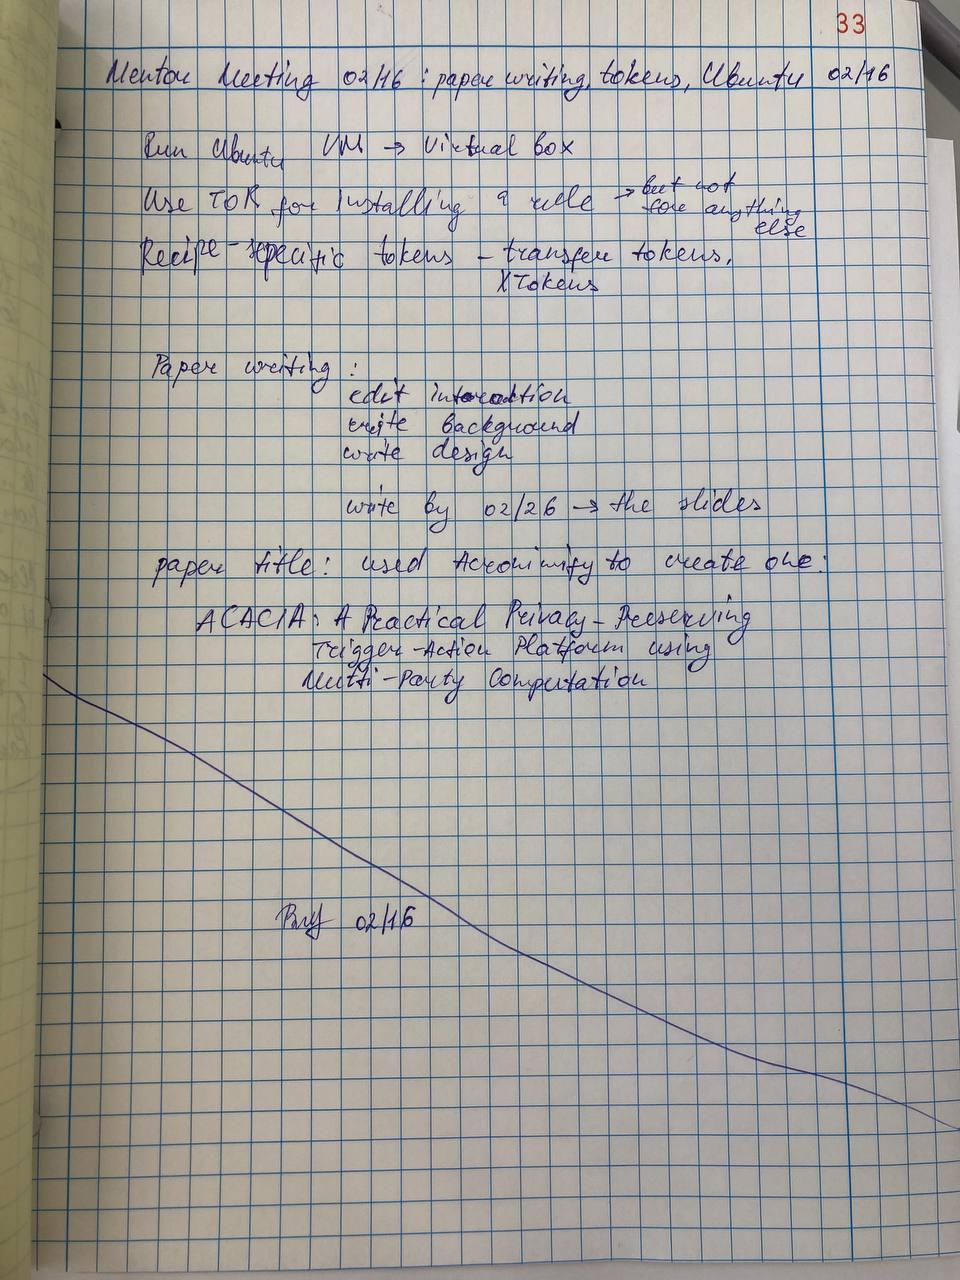 33
Mentor Meeting 02/16 : paper writing, tokens, Ubuntu 02/16
Run Ubuntu VM → Virtual box
Use TOR for installing a rule → but not
for anything
else
Recipe-specific tokens - transfer tokens,
XTokens
Paper writing :
edit
write background
write design
write by 02/26 → the slides
paper title: used Acronimify to create one:
ACACIA: A Practical Privacy-Preserving
Trigger-Action Platform using
Multi-Party Computation
02/16